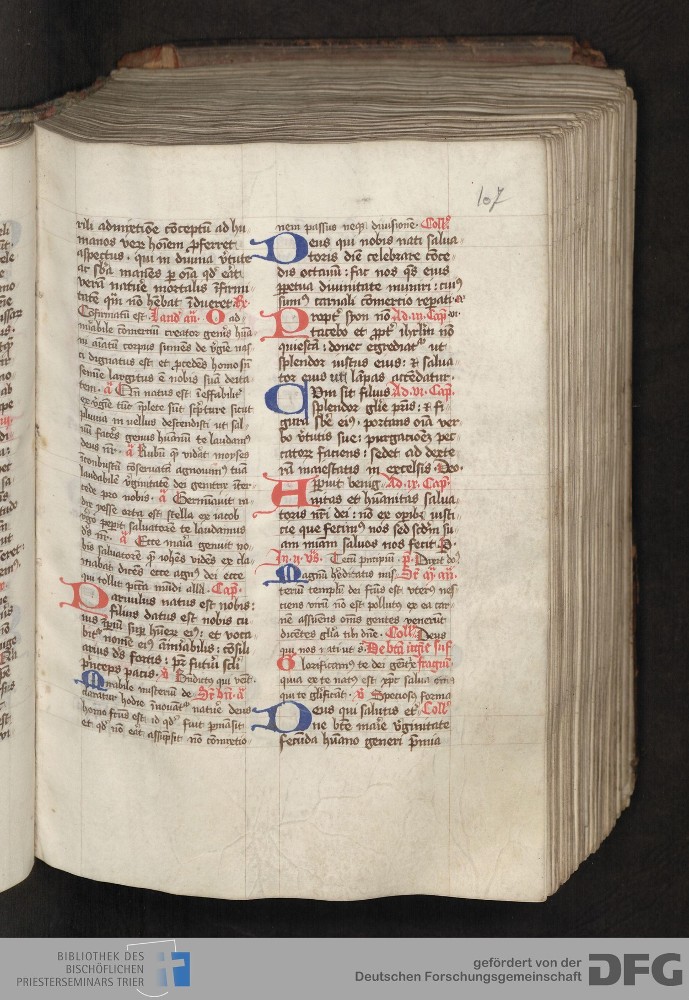 107
rili admiratiōe cōceptū ad hu
manos verꝫ hoīem ꝓferret
aspectus · qui in diuina ꝟtute
ac sb̄a manēs ꝑ oīa qd̓ eāt
verā nature mortalis īfirmi
tatē qm̄ nō hēbat īdueret R̄
Cōfirmatū est. Laud̓ añ. O ad
mirabile cōmerciū creator genis huāi
aīatū corpus sumēs de ꝟgīe nas
ci dignatus est et ꝓcedēs homo sn̄
semīe largitus ē nobis suā deita
tem · a Qn̄ natus est ineffabilit̓
ex ꝟgīe tūc īplete sūt sc̄pture sicut
pluuia in vellus descendisti ut sal
uū facēs genus huānū te laudam̓
deus nr̄ · a Rubū quē vid̓at moyses
īcōbustū cōseruatā agnouim̓ tuā
laudabilē ꝟginitatē dei genitrix īter
cede pro nobis · a Germinauit ra
dix yesse orta est stella ex iacob
ꝟgo peperit saluatorē te laudamus
ds̄ nr̄ · a Ecce maria genuit no
bis saluatorē quē iohēs vidēs ex cla
mabat dicēs ecce agn̓ dei ecce
qui tollit pctā mūdi alla · Capl̄.
Paruulus natus est nobis:
filius datus est nobis cu
ius īperiū suꝑ hūerꝫ eiꝰ: et voca
bit̓ nomē eiꝰ āmiabilis: cōsili
arius ds̄ fortis: pr̄ futuri scl̄i
pͥnceps pacis · ꝟ Bn̄dictꝰ qui venit.
Mirabile misteriū de Sr̄ bn̄. a
claratur hodie īnouāt̓ nature deus
homo fcūs est id qd̓ fuit ꝑmāsit
et qd̓ nō eāt assūpsit nō cōmixtio
nem passus neqꝫ diuisionē · Coll̄a
Deus qui nobis nati salua
toris diē celebrare cōce
dis octauū: fac nos qs̄ eius
ꝑpetua diuinitate muniri: cuiꝰ
sumꝰ carnali cōmercio repati · ꝑ
Propt̓ syon nō Ad. iii. Capl̄
tacebo et ꝓpt̓ ihrl̄m nō
quiescā: donec egrediat̓ ut
splendor iustus eius: et salua
tor eius ut lāpas accēdatur.
Cum sit filius Ad. vi. Capl̄.
splendor gl̄ie pr̄is: et fi
gura sb̄e eiꝰ, portans oīa ver
bo ꝟtutis sue: purgationē pec
catorꝫ faciens: sedet ad dexte
rā maiestatis in excelsis Deo.
Apparuit benig. Ad. ix. Capl̄.
nitas et hūanitas salua
toris nr̄i dei: nō ex opibꝫ iusti
cie que fecimꝰ nos sed scd̓m su
am mīam saluos nos fecit. D.
In. ii. vs̄. Tecū pͥncipiū · p̄. Dixit dn̄s
Magnū hēditatis mis̄ Sr̄ mg. añ.
teriū templū dei fcūs est vterꝰ nes
ciens virū nō est pollutꝰ ex ea car
nē assumēs oēs gentes venient
dicētes gl̄ia tibi dn̄e · Coll̄a Deus
qui nos nati ut s̄. De bt̄a ꝟgīe suf
Glorificamꝰ te dei genitͥx fragiū
quia ex te natꝰ est xpc̄ salua oīs
qui te gl̄ificāt · ꝟ Speciosa forma
Deus qui salutis et̓ Coll̄a
ne bt̄e marie ꝟginitate
fecūda hūano generi pͥmia
BIBLIOTHEK DES
BISCHÖFLICHEN
PRIESTERSEMINARS TRIER
gefördert von der
Deutschen Forschungsgemeinschaft
DFG